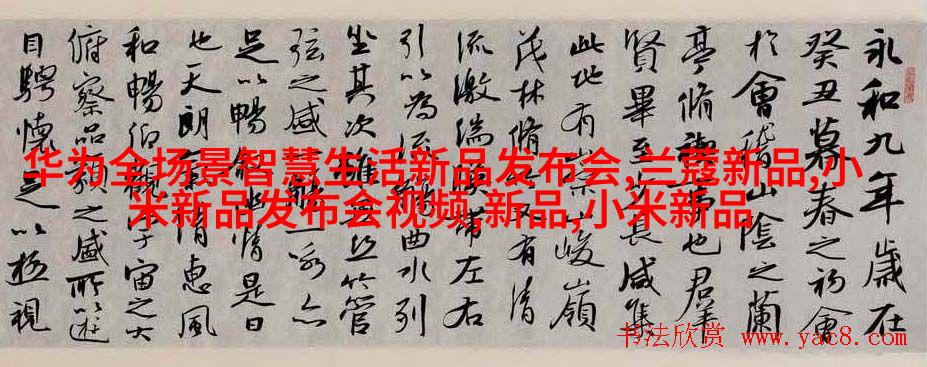 永和九年歲在
癸丑暮春之初會
於會稽山陰之蘭
亭脩禊事也羣
賢畢至少長咸集
此地有崇山峻嶺
茂林脩竹又有清
流激湍映帶左右
引以為流觴曲水列
坐其次雖無絲竹管
弦之盛一觴一詠亦
足以暢敘幽情是日
也天朗氣清惠風
和暢仰觀宇宙之大
俯察品類之盛所以遊
目騁懷足以極視
华为全场景智慧生活新品发布会,兰蔻新品,小
米新品发布会视频,新品,小米新品
书法欣赏 www.yac8.com